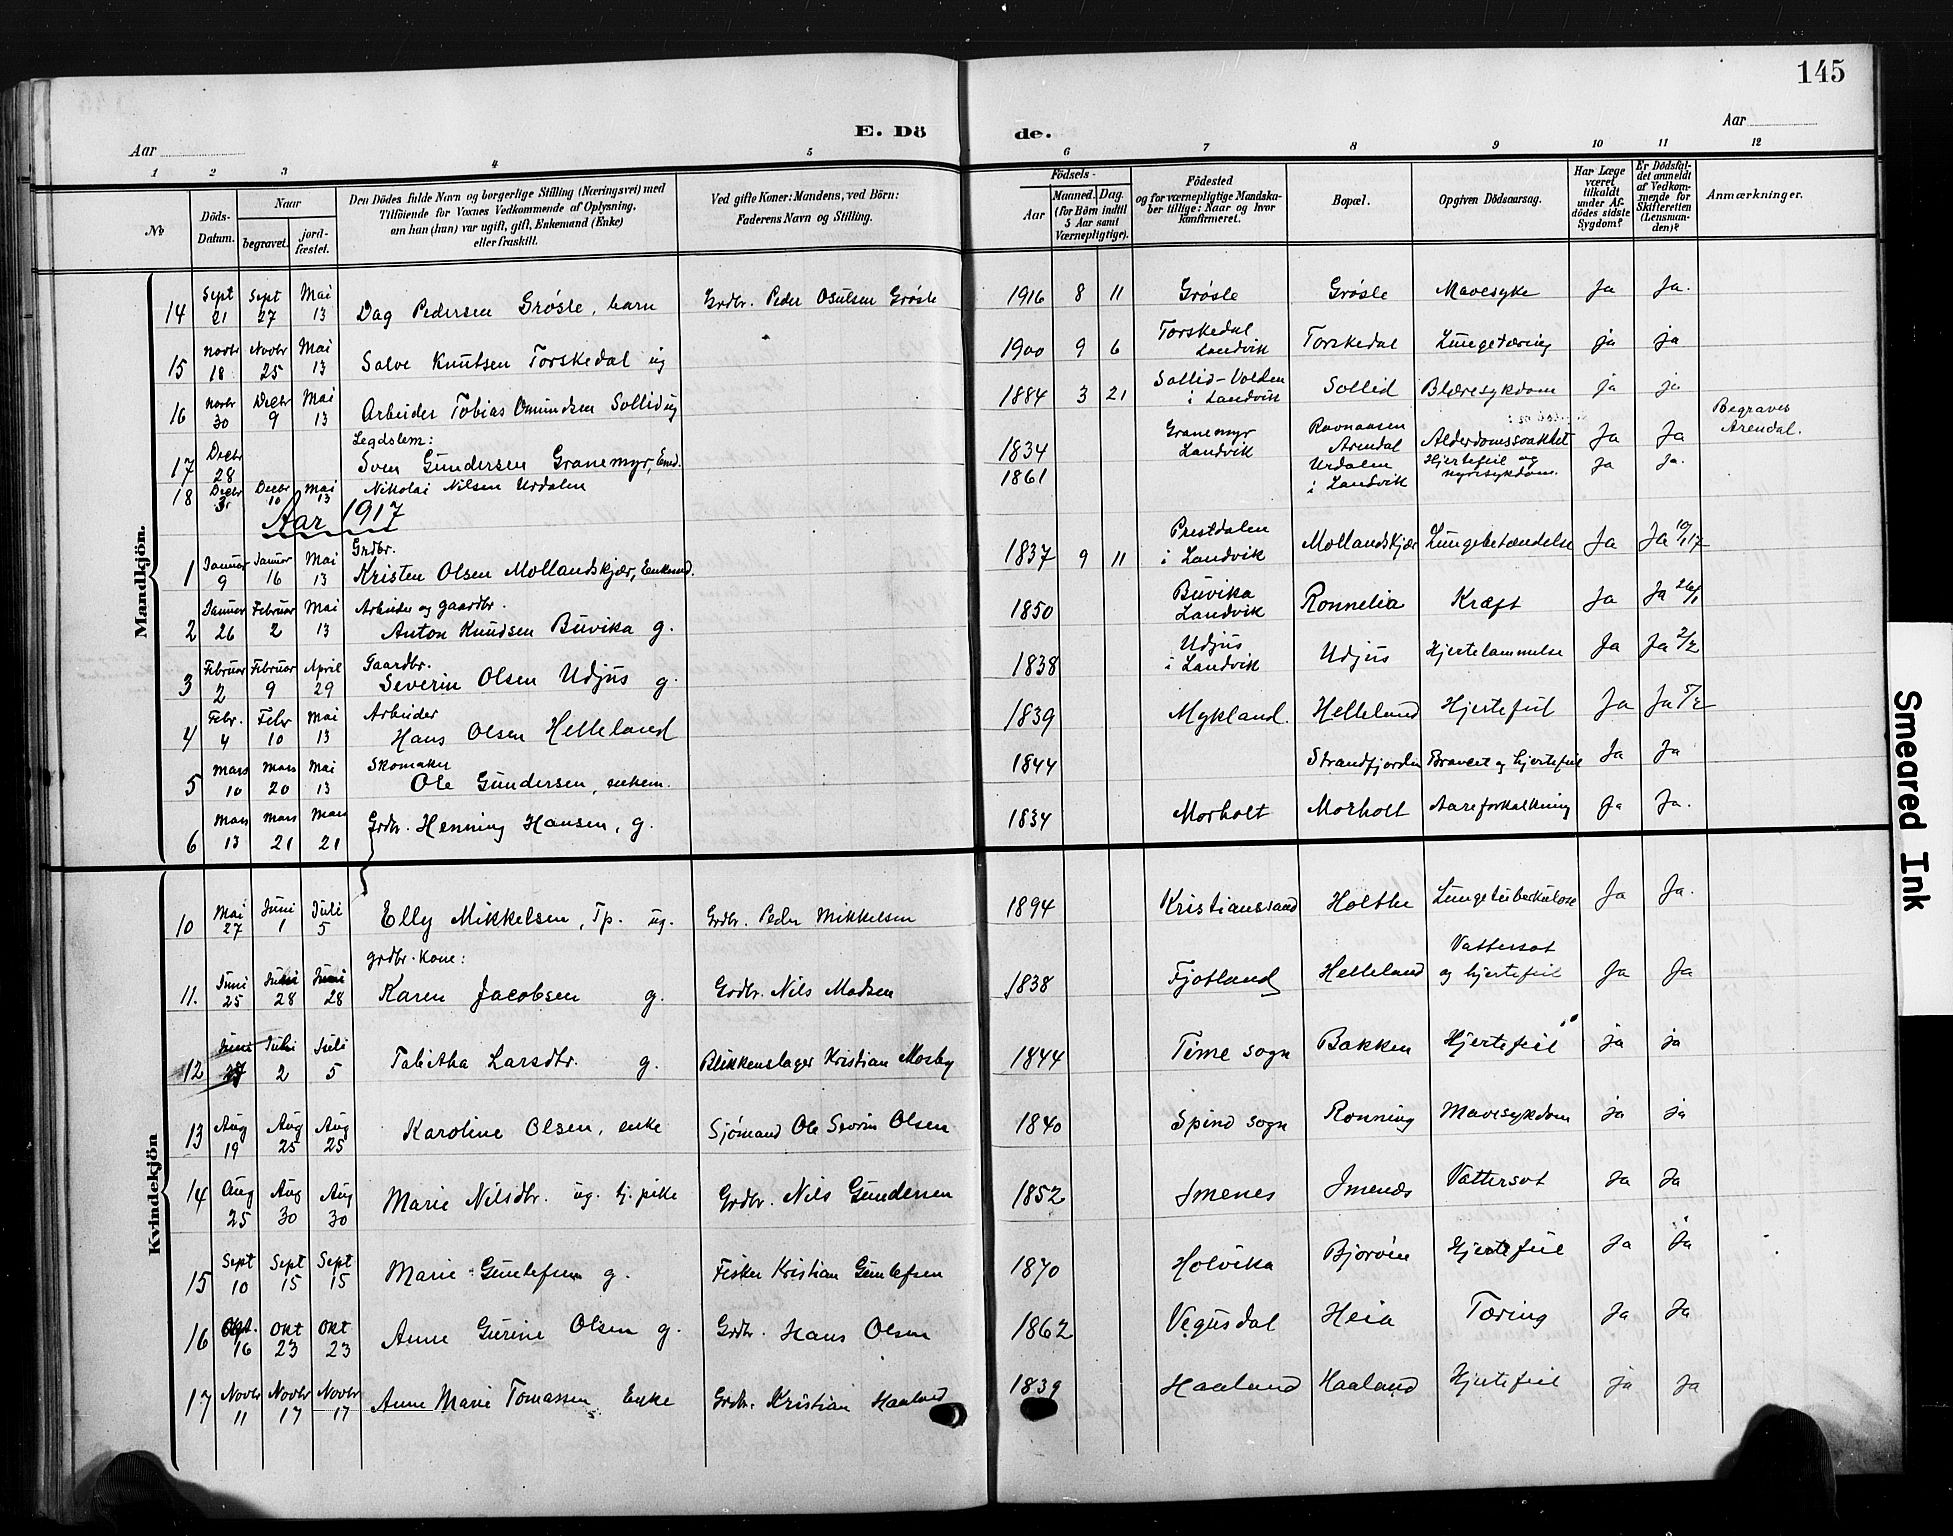 145
E. Dö de.
Aar
Aar
1 2 3 4 5 6 7 8 9 10 11 12
No
Döds-Datum.
Naar
begravet. jord-fæstet.
Den Dödes fulde Navn og borgerlige Stilling (Næringsvei) med
Tilföiende for Voxnes Vedkommende af Oplysning,
om han (hun) var ugift, gift, Enkemand (Enke)
eller fraskilt.
Ved gifte Koner: Mandens, ved Börn:
Faderens Navn og Stilling.
Födsels-
Aar Maaned. Dag.
(for Börn indtil
5 Aar samt
Værnepligtige).
Födested
og for værnepligtige Mandska-
ber tillige: Naar og hvor
konfirmeret.
Bopæl.
Opgiven Dödsaarsag.
Har Læge
været
tilkaldt
under Af-
dödes sidste
Sygdom?
Er Dödsfal-
det anmeldt
af Vedkom-
mende for
Skifteretten
(Lensman-
den)?
Anmærkninger.
Mandkjön.
14 Sept 21 Sept 27 Mai 13 Dag Pedersen Grøsle, barn Grdbr. Peder Osulsen Grøsle 1916 8 11 Grøsle Grøsle Mavesyke Ja Ja.
15 Novbr 18 Novbr 25 Mai 13 Salve Knutsen Torskedal ug 1900 9 6 Torskedal Landvik Torskedal Lungetæring ja ja
16 Novbr 30 Decbr 9 Mai 13 Arbeider Tobias Omundsen Sollid ug 1884 3 21 Sollid-Volden i Landvik Sollid Blæresykdom ja ja
17 Decbr 28 Legdslem: Sven Gundersen Granemyr, Enkem. 1834 Granemyr Landvik Ravnaasen Arendal Alderdomssvakhet Ja Ja Begraves Arendal.
18 Decbr 3 Decbr 10 Mai 13 Nikolai Nilsen Urdalen 1861 Urdalen i Landvik Hjertefeil og nyresykdom. Ja Ja.
Aar 1917
1 Januar 9 Januar 16 Mai 13 Grdbr. Kristen Olsen Mollandskjær, Enkemd. 1837 9 11 Prestdalen i Landvik Mollandskjær Lungebetændelse Ja Ja 10/1 17
2 Januar 26 Februar 2 Mai 13 Arbeider og gaardbr. Anton Knudsen Buvika g. 1850 Buvika Landvik Ronnelia Kræft Ja Ja 26/1
3 Februar 2 Februar 9 April 29 Gaardbr. Severin Olsen Udjus g. 1838 Udjus i Landvik Udjus Hjertelammelse Ja Ja 2/2
4 Febr. 4 Febr 10 Mai 13 Arbeider Hans Olsen Helleland 1839 Mykland Helleland Hjertefeil Ja Ja 5/2
5 Mars 10 Mars 20 Mai 13 Skomaker Ole Gundersen, enkem. 1844 Strandfjorden og hjertefeil Ja Ja
6 Mars 13 Mars 21 Mars 21 Grdbr. Henning Hansen, g. 1834 Morholt Morholt Aareforkalkning Ja Ja.
Kvindekjön
10 Mai 27 Juni 1 Juli 5 Elly Mikkelsen, Tp. ug. Grdbr. Peder Mikkelsen 1894 Kristianssand Holthe Lungetuberkulose Ja Ja.
11. Juni 25 Juni 28 Juni 28 grdbr. kone: Karen Jacobsen g. Grdbr. Nils Madsen 1838 Fjotland Helleland Vattersot og hjertefeil Ja Ja
12 Juni 27 Juli 2 Juli 5 Tabitha Larsdtr. g. Blikkenslager Kristian Mosby 1844 Time sogn Bakken Hjertefeil ja ja
13 Aug 19 Aug 25 Aug 25 Karoline Olsen, enke Sjömand Ole Severin Olsen 1840 Spind sogn Ronning Mavesykdom ja ja
14 Aug 25 Aug 30 Aug 30 Marie Nilsdtr. ug. tj. pike Grdbr. Nils Gundersen 1852 Imenes Imenæs Vattersot Ja Ja
15 Sept 10 Sept 15 Sept 15 Marie Gunlefsen g. Fisker Kristian Gunlefsen 1870 Holvika Bjorvin Hjertefeil Ja Ja
16 Okt. 16 Okt 23 Okt 23 Anne Gurine Olsen g. Grdbr. Hans Olsen 1862 Vegusdal Heia Tæring Ja Ja
17 Novbr 11 Novbr 17 Novbr 17 Anne Marie Tomassen Enke Grdbr. Kristian Haaland 1839 Haaland Haaland Hjertefeil ja Ja
Smeared Ink